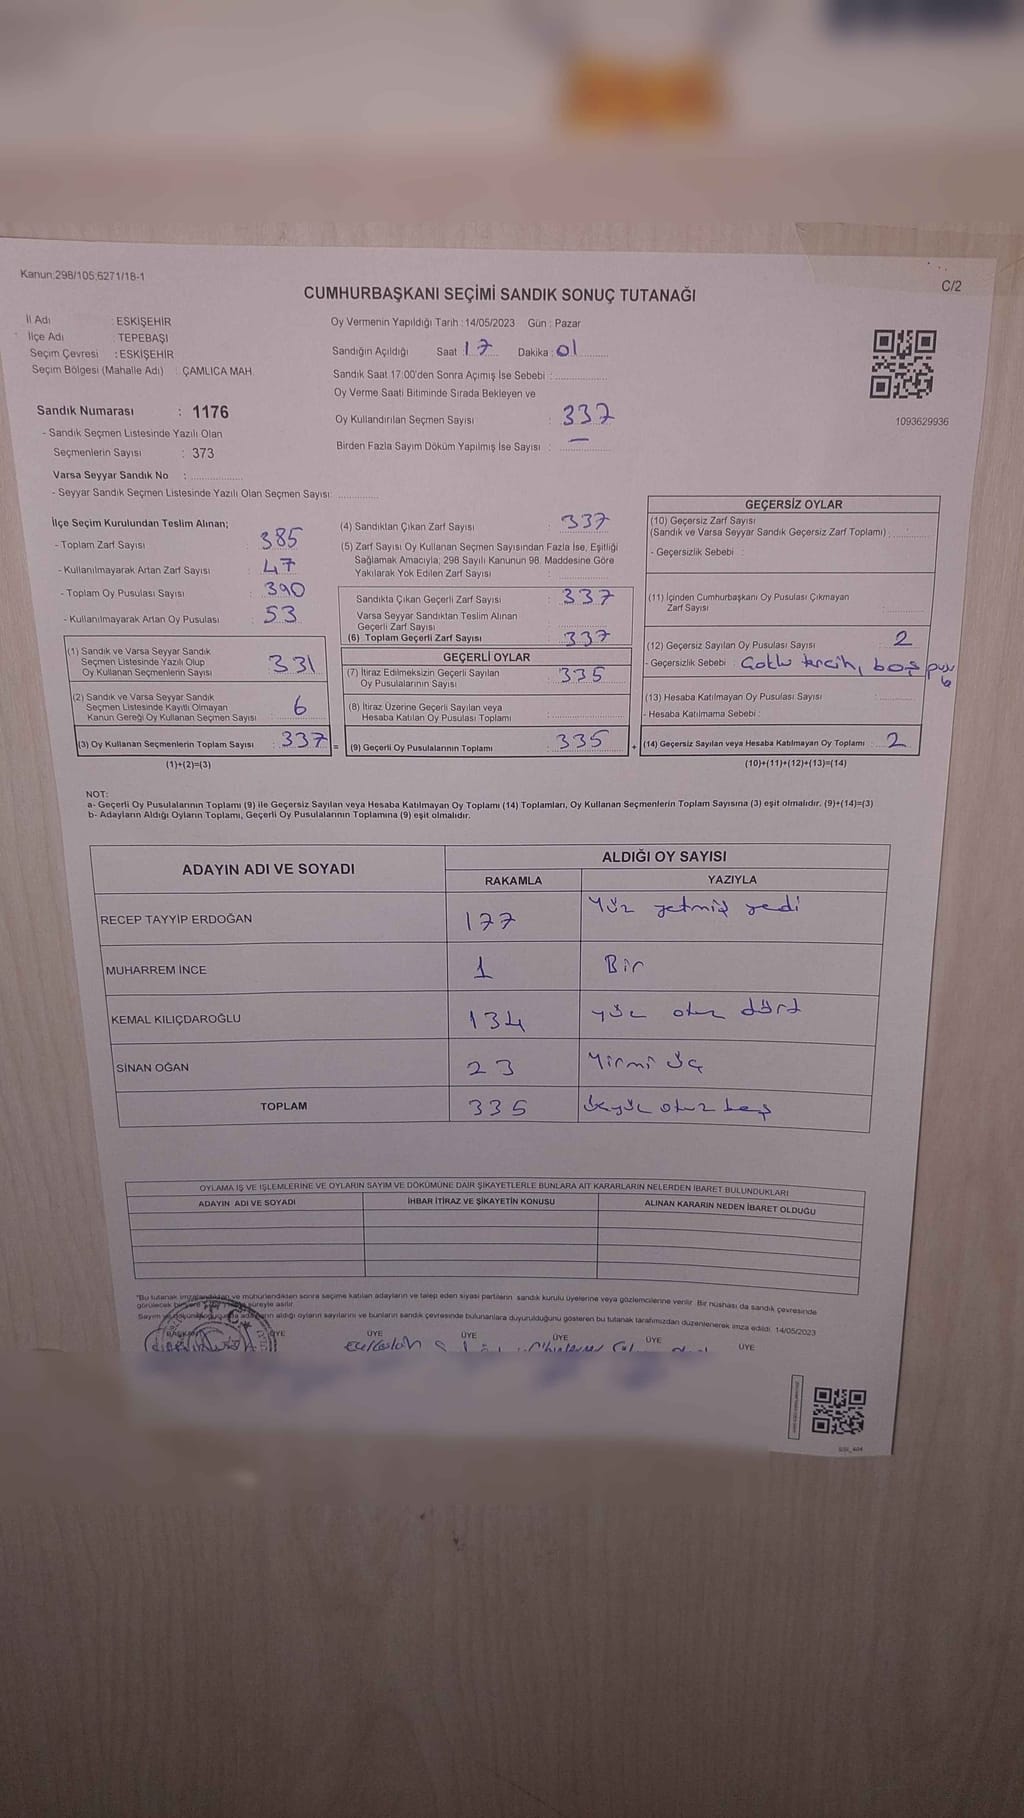 Kanun:298/105;6271/18-1
C/2
CUMHURBAŞKANI SEÇİMİ SANDIK SONUÇ TUTANAĞI
İl Adı : ESKİŞEHİR
İlçe Adı : TEPEBAŞI
Seçim Çevresi : ESKİŞEHİR
Seçim Bölgesi (Mahalle Adı) : ÇAMLICA MAH.
Sandık Numarası : 1176
- Sandık Seçmen Listesinde Yazılı Olan
Seçmenlerin Sayısı : 373
Varsa Seyyar Sandık No :
- Seyyar Sandık Seçmen Listesinde Yazılı Olan Seçmen Sayısı:
Oy Vermenin Yapıldığı Tarih : 14/05/2023 Gün : Pazar
Sandığın Açıldığı Saat 17 Dakika : 01
Sandık Saat 17:00'den Sonra Açımış İse Sebebi :
Oy Verme Saati Bitiminde Sırada Bekleyen ve
Oy Kullandırılan Seçmen Sayısı : 337
Birden Fazla Sayım Döküm Yapılmış İse Sayısı : —
1093629936
İlçe Seçim Kurulundan Teslim Alınan;
- Toplam Zarf Sayısı : 385
- Kullanılmayarak Artan Zarf Sayısı : 47
- Toplam Oy Pusulası Sayısı : 390
- Kullanılmayarak Artan Oy Pusulası : 53
(1) Sandık ve Varsa Seyyar Sandık
Seçmen Listesinde Yazılı Olup
Oy Kullanan Seçmenlerin Sayısı : 331
(2) Sandık ve Varsa Seyyar Sandık
Seçmen Listesinde Kayıtlı Olmayan
Kanun Gereği Oy Kullanan Seçmen Sayısı : 6
(3) Oy Kullanan Seçmenlerin Toplam Sayısı : 337 =
(1)+(2)=(3)
(4) Sandıktan Çıkan Zarf Sayısı : 337
(5) Zarf Sayısı Oy Kullanan Seçmen Sayısından Fazla İse, Eşitliği
Sağlamak Amacıyla, 298 Sayılı Kanunun 98. Maddesine Göre
Yakılarak Yok Edilen Zarf Sayısı :
Sandıkta Çıkan Geçerli Zarf Sayısı : 337
Varsa Seyyar Sandıktan Teslim Alınan
Geçerli Zarf Sayısı :
(6) Toplam Geçerli Zarf Sayısı : 337
GEÇERLİ OYLAR
(7) İtiraz Edilmeksizin Geçerli Sayılan
Oy Pusulalarının Sayısı : 335
(8) İtiraz Üzerine Geçerli Sayılan veya
Hesaba Katılan Oy Pusulası Toplamı :
(9) Geçerli Oy Pusulalarının Toplamı : 335 +
GEÇERSİZ OYLAR
(10) Geçersiz Zarf Sayısı
(Sandık ve Varsa Seyyar Sandık Geçersiz Zarf Toplamı) :
- Geçersizlik Sebebi :
(11) İçinden Cumhurbaşkanı Oy Pusulası Çıkmayan
Zarf Sayısı :
(12) Geçersiz Sayılan Oy Pusulası Sayısı : 2
- Geçersizlik Sebebi : Çoklu tercih, boş
(13) Hesaba Katılmayan Oy Pusulası Sayısı :
- Hesaba Katılmama Sebebi :
(14) Geçersiz Sayılan veya Hesaba Katılmayan Oy Toplamı : 2
(10)+(11)+(12)+(13)=(14)
NOT:
a- Geçerli Oy Pusulalarının Toplamı (9) ile Geçersiz Sayılan veya Hesaba Katılmayan Oy Toplamı (14) Toplamları, Oy Kullanan Seçmenlerin Toplam Sayısına (3) eşit olmalıdır. (9)+(14)=(3)
b- Adayların Aldığı Oyların Toplamı, Geçerli Oy Pusulalarının Toplamına (9) eşit olmalıdır.
ADAYIN ADI VE SOYADI ALDIĞI OY SAYISI
RAKAMLA YAZIYLA
RECEP TAYYİP ERDOĞAN 177 Yüz yetmiş yedi
MUHARREM İNCE 1 Bir
KEMAL KILIÇDAROĞLU 134 yüz otuz dört
SİNAN OĞAN 23 Yirmi üç
TOPLAM 335 üçyüz otuz beş
OYLAMA İŞ VE İŞLEMLERİNE VE OYLARIN SAYIM VE DÖKÜMÜNE DAİR ŞİKAYETLERLE BUNLARA AİT KARARLARIN NELERDEN İBARET BULUNDUKLARI
ADAYIN ADI VE SOYADI İHBAR İTİRAZ VE ŞİKAYETİN KONUSU ALINAN KARARIN NEDEN İBARET OLDUĞU
*Bu tutanak imzalandıktan ve mühürlendikten sonra seçime katılan adayların ve talep eden siyasi partilerin sandık kurulu üyelerine veya gözlemcilerine verilir. Bir nüshası da sandık çevresinde
görülecek bir süreyle asılır.
aldığı oyların sayılarını ve bunların sandık çevresinde bulunanlara duyurulduğunu gösteren bu tutanak tarafımızdan düzenlenerek imza edildi. 14/05/2023
BAŞKAN ÜYE ÜYE ÜYE ÜYE ÜYE ÜYE